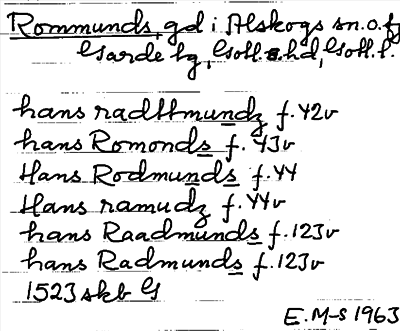 Rommunds, gd i Alskogs sn.o.fg
Garde tg, Gotl.s.hd, Gotl.l.
hans radttmundz f. 42v
hans Romonds f. 43v
Hans Rodmunds f. 44
Hans ramudz f. 44v
hans Raadmunds f. 123v
hans Radmunds f. 123v
1523 skb G
E.M-S 1963